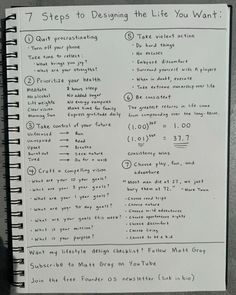 7 Steps to Designing the Life You Want:
① Quit procrastinating
- Turn off your phone
Take time to reflect:
- What brings you joy?
- What are your strengths?
② Prioritize your health
Meditate
8 hours sleep
No alcohol
No added sugar
Lift weights
No energy vampires
Clear vision
Make time for family
Morning Sun
Express gratitude daily
③ Take control of your future
Unfocused → Plan
Unrested → Sleep
Upset → Breathe
Burnt out → Seek nature
Tired → Go for a walk
④ Craft a compelling vision
- What are your 10 year goals?
- What are your 3 year goals?
- What are your 1 year goals?
- What are your 90 day goals?
- What are your goals this week?
- What is your mission?
- What is your purpose?
⑤ Take violent action
- Do hard things
- No excuses
- Embrace discomfort
- Surround yourself with A players
- When in doubt, execute
- Take extreme ownership over life
⑥ Be consistent
The greatest returns in life come
from compounding over the long-term.
(1.00)³⁶⁵ = 1.00
(1.01)³⁶⁵ = 37.7
Consistency wins
⑦ Choose play, fun, and
adventure
"Most men die at 27, we just
bury them at 72." - Mark Twain
- Choose road trips
- Choose nature
- Choose wild adventures
- Choose spontaneous nights
- Choose discomfort
- Choose living
- Choose to be a kid
Want my lifestyle design checklist? Follow Matt Gray
Subscribe to Matt Gray on YouTube
Join the free Founder OS newsletter (link in bio)